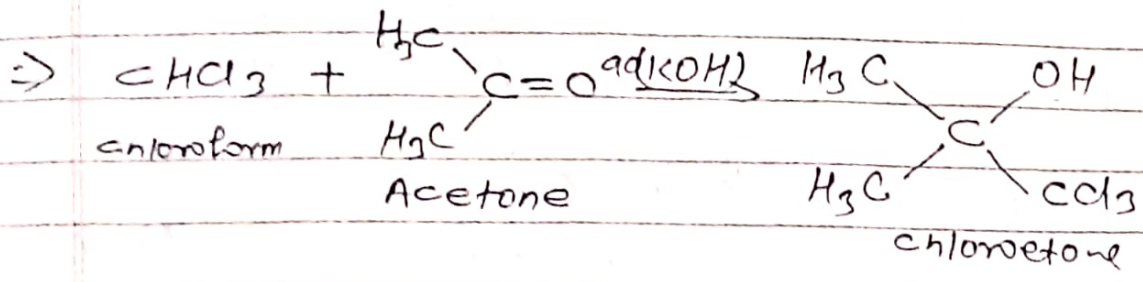 ⇒ CHCl3 + H3C H3C C=O aq(KOH) H3C H3C C OH CCl3
chloroform Acetone chloroetone